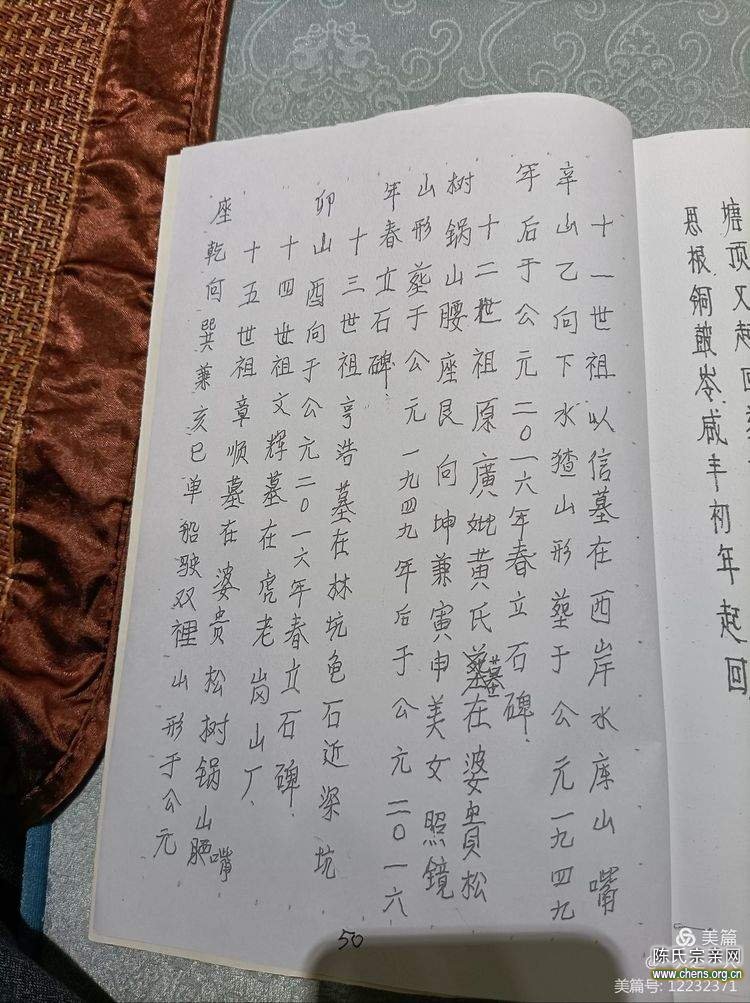 十一世祖以信墓在西岸水库山嘴
辛山乙向下水猹山形塟于公元一九四九
年后于公元二〇一六年春立石碑.
十二世祖原廣妣黄氏墓在婆貴松
树锅山腰座艮向坤兼寅申美女照鏡
山形塟于公元一九四九年后于公元二〇一六
年春立石碑.
十三世祖亨浩墓在林坑龟石近深坑
卯山酉向于公元二〇一六年春立石碑.
十四世祖文辉墓在虎老岗山厂.
十五世祖章顺墓在婆贵松树锅山嘴
座乾向巽兼亥巳单船驶双裡山形于公元
50
塘顶又起回
思根铜鼓岺咸丰初年起回
美篇
陈氏宗亲网
www.chens.org.cn
美篇号: 12232371